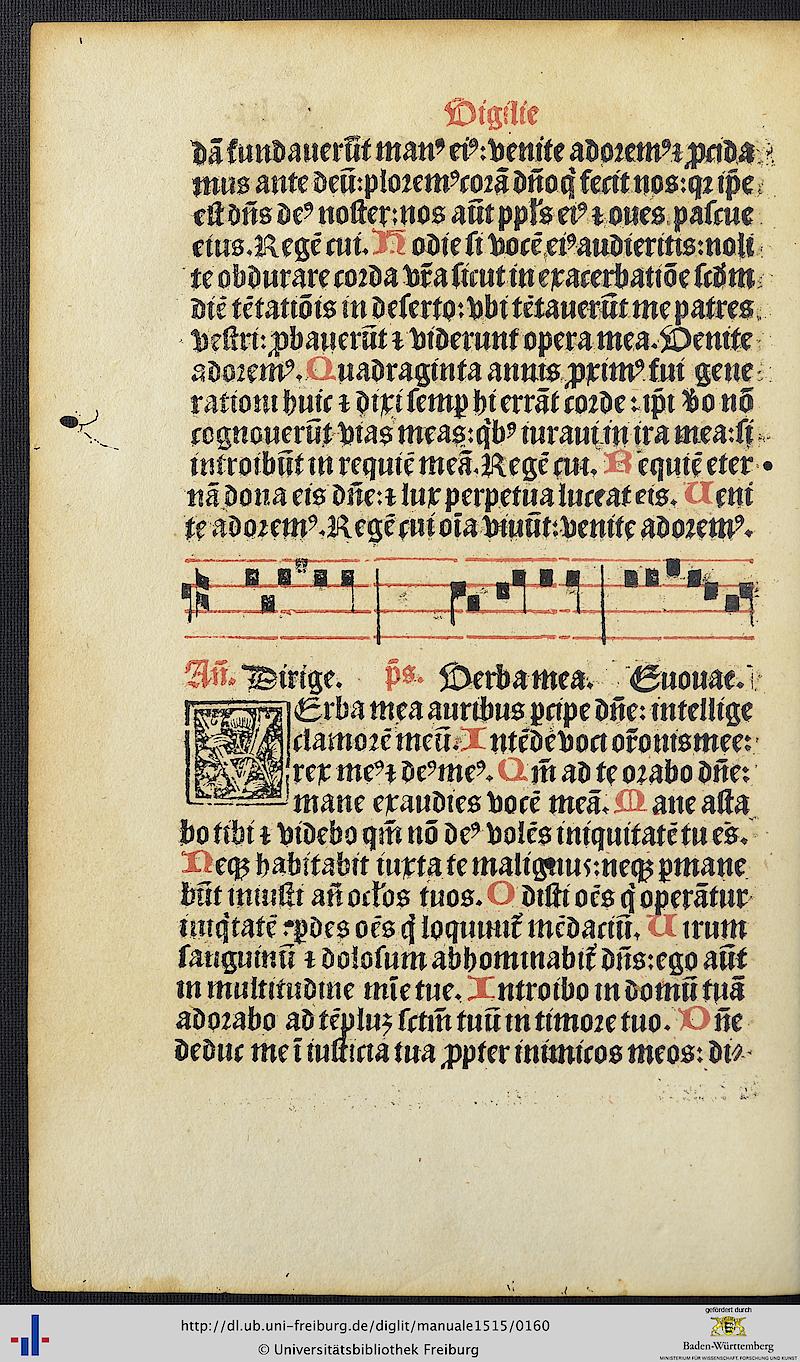 Vigilie
dā fundauerūt manꝰ eiꝰ: venite adoremꝰ ⁊ ꝓcida
mus ante deū: ploremꝰ corā dño q̇ fecit nos: qꝛ ip̄e
est dñs deꝰ noster: nos aūt ppl's eiꝰ ⁊ oues pascue
eius. Regē cui. Hodie si vocē eiꝰ audieritis: noli
te obdurare corda vr̄a sicut in exacerbatiōe scḋm
diē tētatiōis in deserto: vbi tētauerūt me patres
vestri: ꝓbauerūt ⁊ viderunt opera mea. Venite
adoremꝰ. Quadraginta annis ꝓximꝰ fui gene
rationi huic ⁊ dixi semꝑ hi errāt corde: ip̄i ꝟo nō
cognouerūt vias meas: q̇bꝰ iuraui in ira mea: si
introibūt in requiē meā. Regē cui. Requiē eter
nā dona eis dñe: ⁊ lux perpetua luceat eis. Ueni
te adoremꝰ. Regē cui oīa viuūt: venite adoremꝰ.
Añ. Dirige. p̄s. Verba mea. Euouae.
VErba mea auribus ꝑcipe dñe: intellige
clamorē meū. Intēde voci or̄onis mee:
rex meꝰ ⁊ deꝰ meꝰ. Qm̄ ad te orabo dñe:
mane exaudies vocē meā. Mane asta
bo tibi ⁊ videbo qm̄ nō deꝰ volēs iniquitatē tu es.
Neqꝫ habitabit iuxta te malignus: neqꝫ ꝑmane
būt iniusti añ ocl'os tuos. Odisti oēs q̇ operātur
iniq̇tatē: ꝑdes oēs q̇ loquunt̄ mēdaciū. Uirum
sanguinū ⁊ dolosum abhominabit̄ dñs: ego aūt
in multitudine mīe tue. Introibo in domū tuā
adorabo ad tēpluꝫ sctm̄ tuū in timore tuo. Dñe
deduc me ī iusticia tua ꝓpter inimicos meos: di⸗
http://dl.ub.uni-freiburg.de/diglit/manuale1515/0160
© Universitätsbibliothek Freiburg
gefördert durch
Baden-Württemberg
MINISTERIUM FÜR WISSENSCHAFT, FORSCHUNG UND KUNST